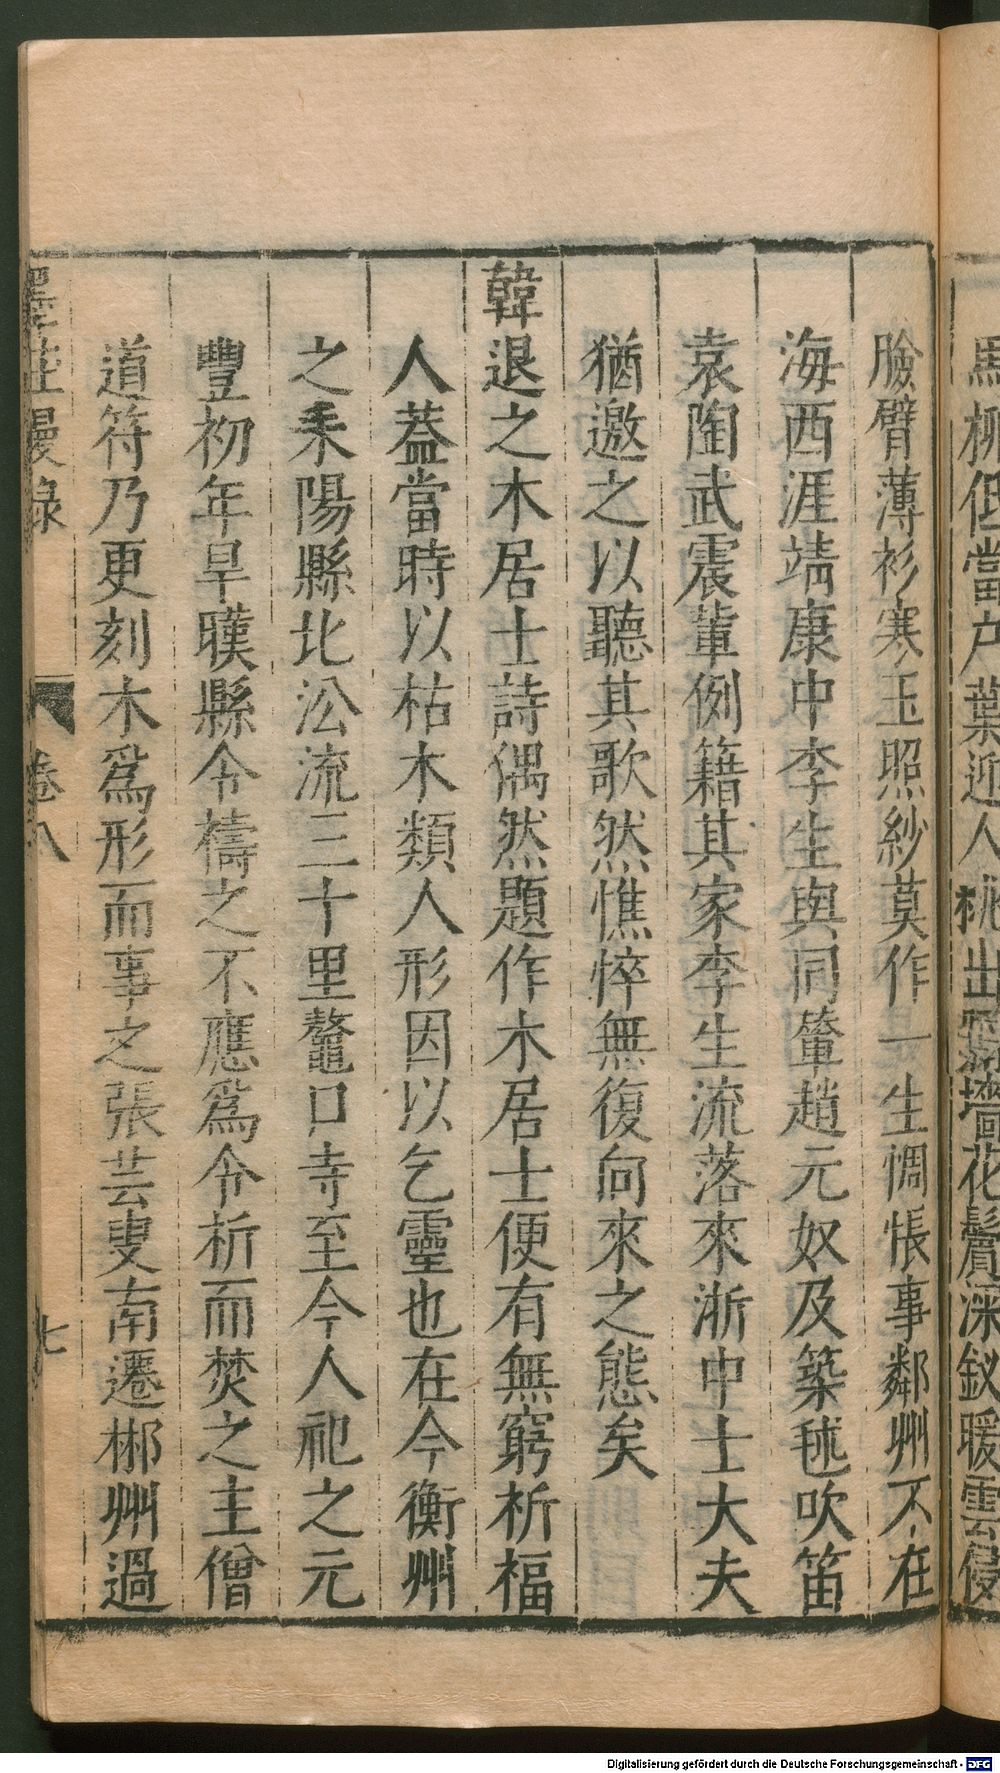 馬柳低當户葉迎人桃出
墻花鬢深釵暖雲侵
臉臂薄衫寒玉照紗莫作一生惆悵事鄰州不在
海西涯靖康中李生與同輩趙元奴及築毬吹笛
袁陶武震輩例籍其家李生流落來浙中士大夫
猶邀之以聽其歌然憔悴無復向來之態矣
韓退之木居士詩偶然題作木居士便有無窮祈福
人蓋當時以枯木類人形因以乞靈也在今衡州
之耒陽縣北㳂流三十里鼇口寺至今人祀之元
豐初年旱暵縣令禱之不應爲令析而焚之主僧
道符乃更刻木爲形而事之張芸叟南遷郴州過
墨莊漫錄
卷八
七
Digitalisierung gefördert durch die Deutsche Forschungsgemeinschaft - DFG